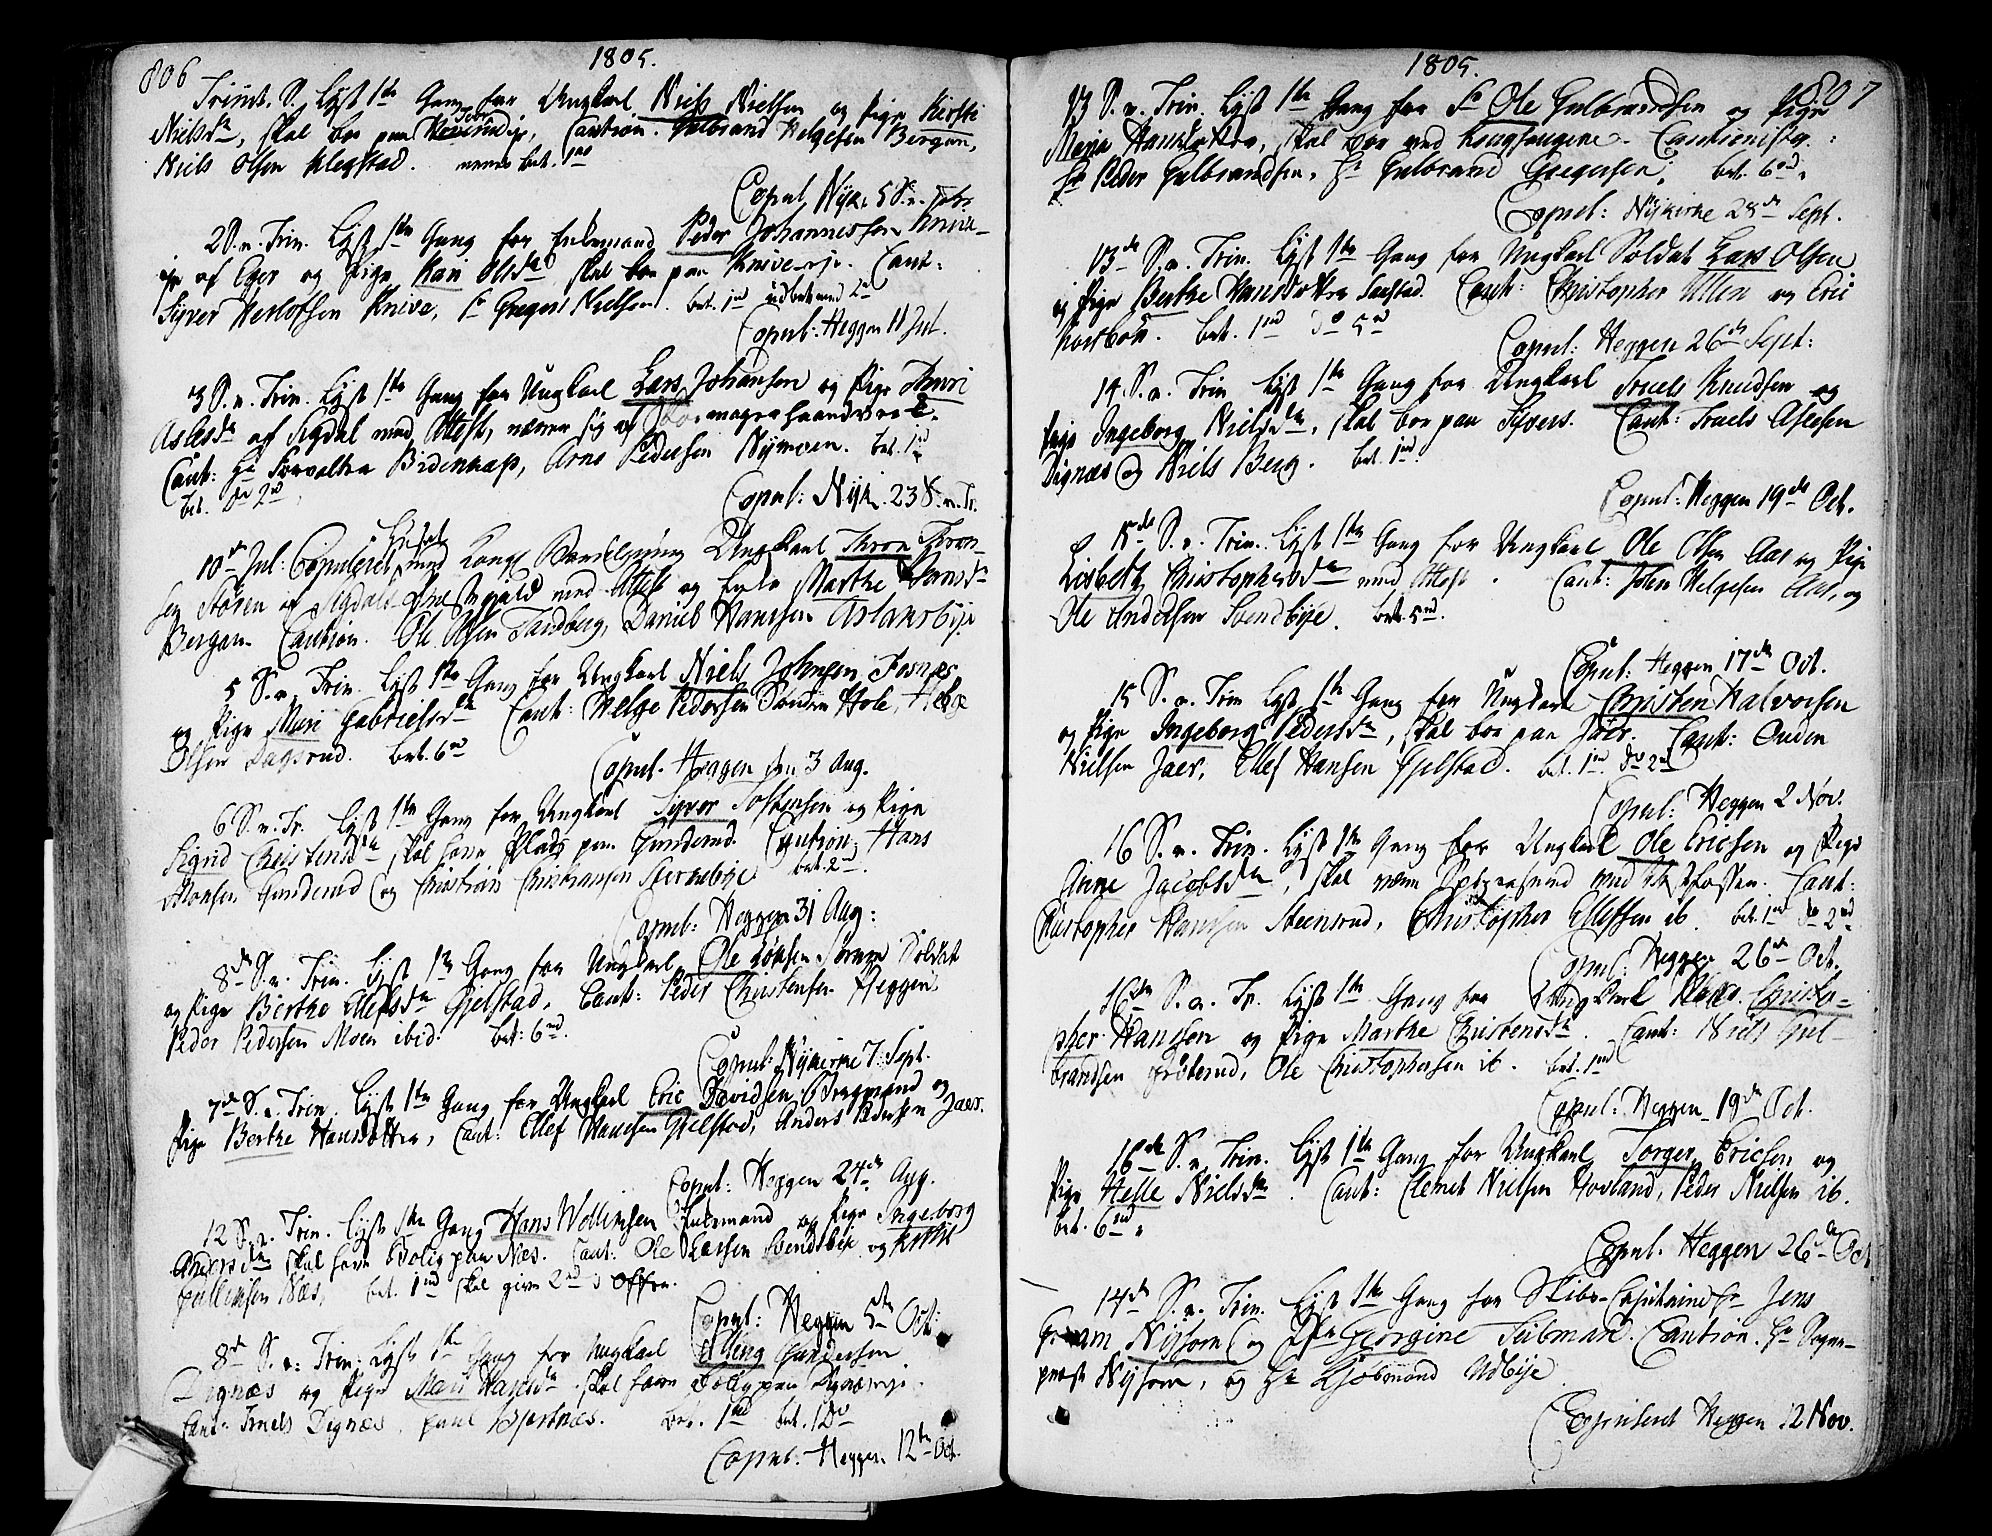 806
1805.
Trinit. S. Lyst 1te Gang for Ungkarl Niels Nielsen og Pige Kirsti
Nielsdtr, skal boe paa Caution. Gulbrand Helgesen Bergan,
Niels Olsen Klegstad. bet. 1nd
Copul. Nyk. 5 S. n. Trin.
2 S. n. Trin. Lyst 1te Gang for Enkemand Peder Johannessen Knive-
eje af Eger og Pige Kari Olsdtr skal boe paa Knive-eje. Caut:
Syver Herlofsen Knive, Sr Gregers Nielsen. bet. 1nd
Copul: Heggen 11 Jul.
3 S. n. Trin. Lyst 1te Gang for Ungkarl Lars Johansen og Pige Thuri
Aslesdtr af Sigdal med Attest, nærer sig af Skomager haandverk.
Caut: Hr Forvalter Bidenkap, Arne Pedersen Nymoen. bet. 1nd
bet. do 2nd
Copul: Nyk. 23 S. n. Tr.
10de Jul: Copuleret med Kongl Bevilgning Ungkarl Thron Thron-
sen Støren af Sigdals Præstegield med Attest og Enke Marthe Hansdtr
Bergan. Caution. Ole Olsen Tandberg, Daniel Hanssen Aslansbye
5 S. n. Trin. Lyst 1te Gang for Ungkarl Niels Johnsen Fosnæs
og Pige Mari Gabrielsdtr Caut: Helge Pedersen Søndre Hole, Helge
Olsen Dagsrud. bet. 6nd
Copul. Heggen den 3 Aug.
6 S. n. Tr. Lyst 1te Gang for Ungkarl Syver Tostensen og Pige
Sigrid Christensdtr skal have Plads paa Gunderud. Caution, Hans
Monsen Gunderud og Christian Christiansen bet. 2nd.
Copul: Heggen 31 Aug:
8de S. n. Trin. Lyst 1te Gang for Ungkarl Ole Soldat
og Pige Berthe Ellefsdtr Gjelstad, Caut: Peder Christensen Heggen,
Peder Pedersen Moen ibid. bet: 6nd.
Copul: Nykirke 7. Sept.
7de S. n. Trin. Lyst 1te Gang for Ungkarl Eric Davidsen Bragmand og
Pige Berthe Hansdatter, Caut: Ellef Hansen Gjelstad, Anders Pedersen Jaer.
Copul: Heggen 24de Aug.
12 S. n. Trin. Lyst 1te Gang Hans Wollimsen Enkemand og Pige Ingeborg
Andersdtr skal have Bolig paa Næs. Caut: Ole Larsen Svendsbye og
Næs, bet. 1nd skal give 2nd i Offer.
Copul: Heggen 5te Oct:
8de S. n: Trin: Lyst 1te Gang for Ungkarl Elling Gundersen
Dignæs og Pige Mari Hansdtr skal have Bolig paa Dignæseje.
Caut: Truels Dignæs, Paul Hjertnæs. bet. 1nd bet. 1 do
Copul: Heggen 12te Oct.
1805.
807
13 S. n. Trin. Lyst 1te Gang for Sr Ole Gulbrandsen og Pige
Maria Hansdatter, skal boe ved Kongsengene. Cautionister:
Hr Peder Gulbrandsen, Hr Gulbrand Gregersen, bet. 6nd.
Copul: Nykirke 28de Sept.
13de S. n. Trin. Lyst 1te Gang for Ungkarl Soldat Lars Olsen
og Pige Berthe Hansdatter Caut: Christopher Ullen og Eric
Korsbøn. bet. 1nd do 5nd
Copul: Heggen 26de Sept:
14. S. n. Trin Lyst 1te Gang for Ungkarl Truels Knudsen og
Pige Ingeborg Nielsdtr, skal boe paa Caut: Truels Aslesen
Dignæs og Niels Berg. bet. 1nd.
Copul: Heggen 19de Oct.
15de S. n. Trin. Lyst 1te Gang for Ungkarl Ole Olsen Aas og Pige
Lisbeth Christophersdtr med Attest. Caut: John Helgesen Aas, og
Ole Andersen Svendbye. bet. 5nd.
Copul. Heggen 17de Oct.
15 S. n. Trin Lyst 1te Gang for Ungkarl Christen Halvorsen
og Pige Ingeborg Pedersdtr, skal boe paa Jaer. Caut: Ouden
Nielsen Jaer, Ellef Hansen Gjelstad. bet. 1nd. do 2nd
Copul: Heggen 2 Nov.
16 S. n. Trin. Lyst 1te Gang for Ungkarl Ole Ericsen og Pige
Anne Jacobsdtr, skal være Caut:
Christopher Hanssen Steensrud, Christopher Ellefsen ib. bet. 1nd do 2nd
Copul: Heggen 26de Oct.
16de S. n. Tr. Lyst 1te Gang for Ungkarl Christo-
pher Hanssen og Pige Marthe Christensdtr. Caut: Niels Gul-
brandsen Ole Christophersen ib. bet. 1nd
Copul: Heggen 19de Oct.
16de S. n. Trin. Lyst 1te Gang for Ungkarl Torger Ericsen og
Pige Helle Nielsdtr. Caut: Clemet Nielsen Hovland, Peder Nielsen ib.
bet. 6nd.
Copul. Heggen 26de Oct
14de S. n. Trin. Lyst 1te Gang for Skibs-Capitaine Hr Jens
Gram Nysom og Jfr Georgine Tubman. Caution. Hr Sogne-
præst Nysom, og Hr Kjøbmand Udbye.
Copuleret Heggen 12 Nov.